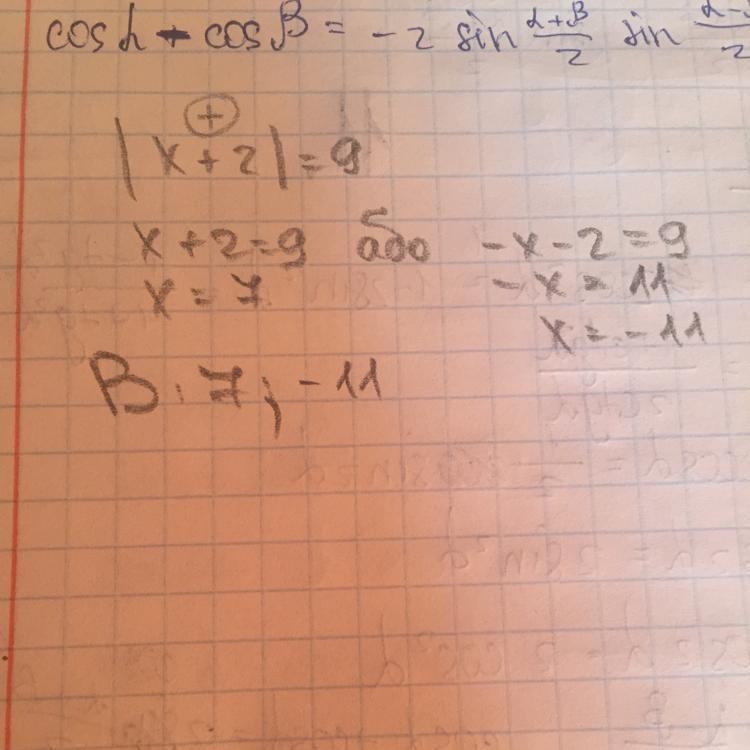 cosα - cosβ = -2 sin (α+β)/2 sin
+
|x+2|=9
x+2=9 або -x-2=9
x=7 -x=11
x=-11
В: 7; -11